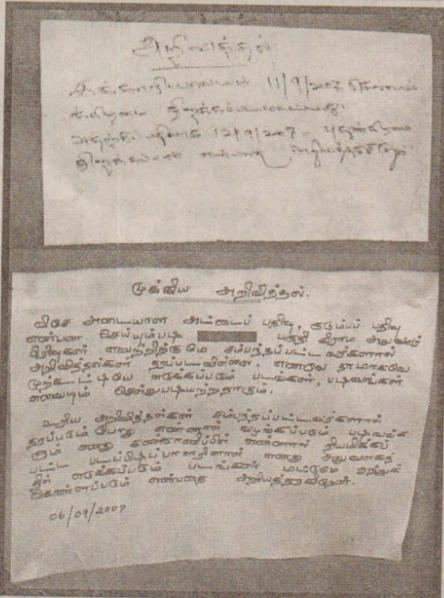 அறிவித்தல்
இக்காரியாலயம் 11/9/2007
12/9/2007
முக்கிய அறிவித்தல்.
விசேட அடையாள அட்டைப் பதிவு, குடும்ப பதிவு
என்பன செய்யும்படி பகுதி கிராம அலுவலர்
பிரிவுகள் எவற்றிற்குமே சம்பந்தப்பட்டவர்களால்
அறிவித்தல்கள் தரப்படவில்லை. எனவே தாமாகவே
முற்கூட்டியே எடுக்கப்படும் படங்கள், படிவங்கள்
எவையும் செல்லுபடியற்றதாகும்.
உரிய அறிவித்தல்கள் சம்பந்தப்பட்டவர்களால்
தரப்படும் போது என்னால் வழங்கப்படும் படிவங்க
ளும் எனது கண்காணிப்பில் என்னால் நியமிக்கப்
பட்ட படப்பிடிப்பாளரினால் எனது அலுவலகத்
தில் எடுக்கப்படும் படங்கள் மட்டுமே ஏற்றுக்
கொள்ளப்படும் என்பதை அறியத்தருகிறேன்.
06/09/2007